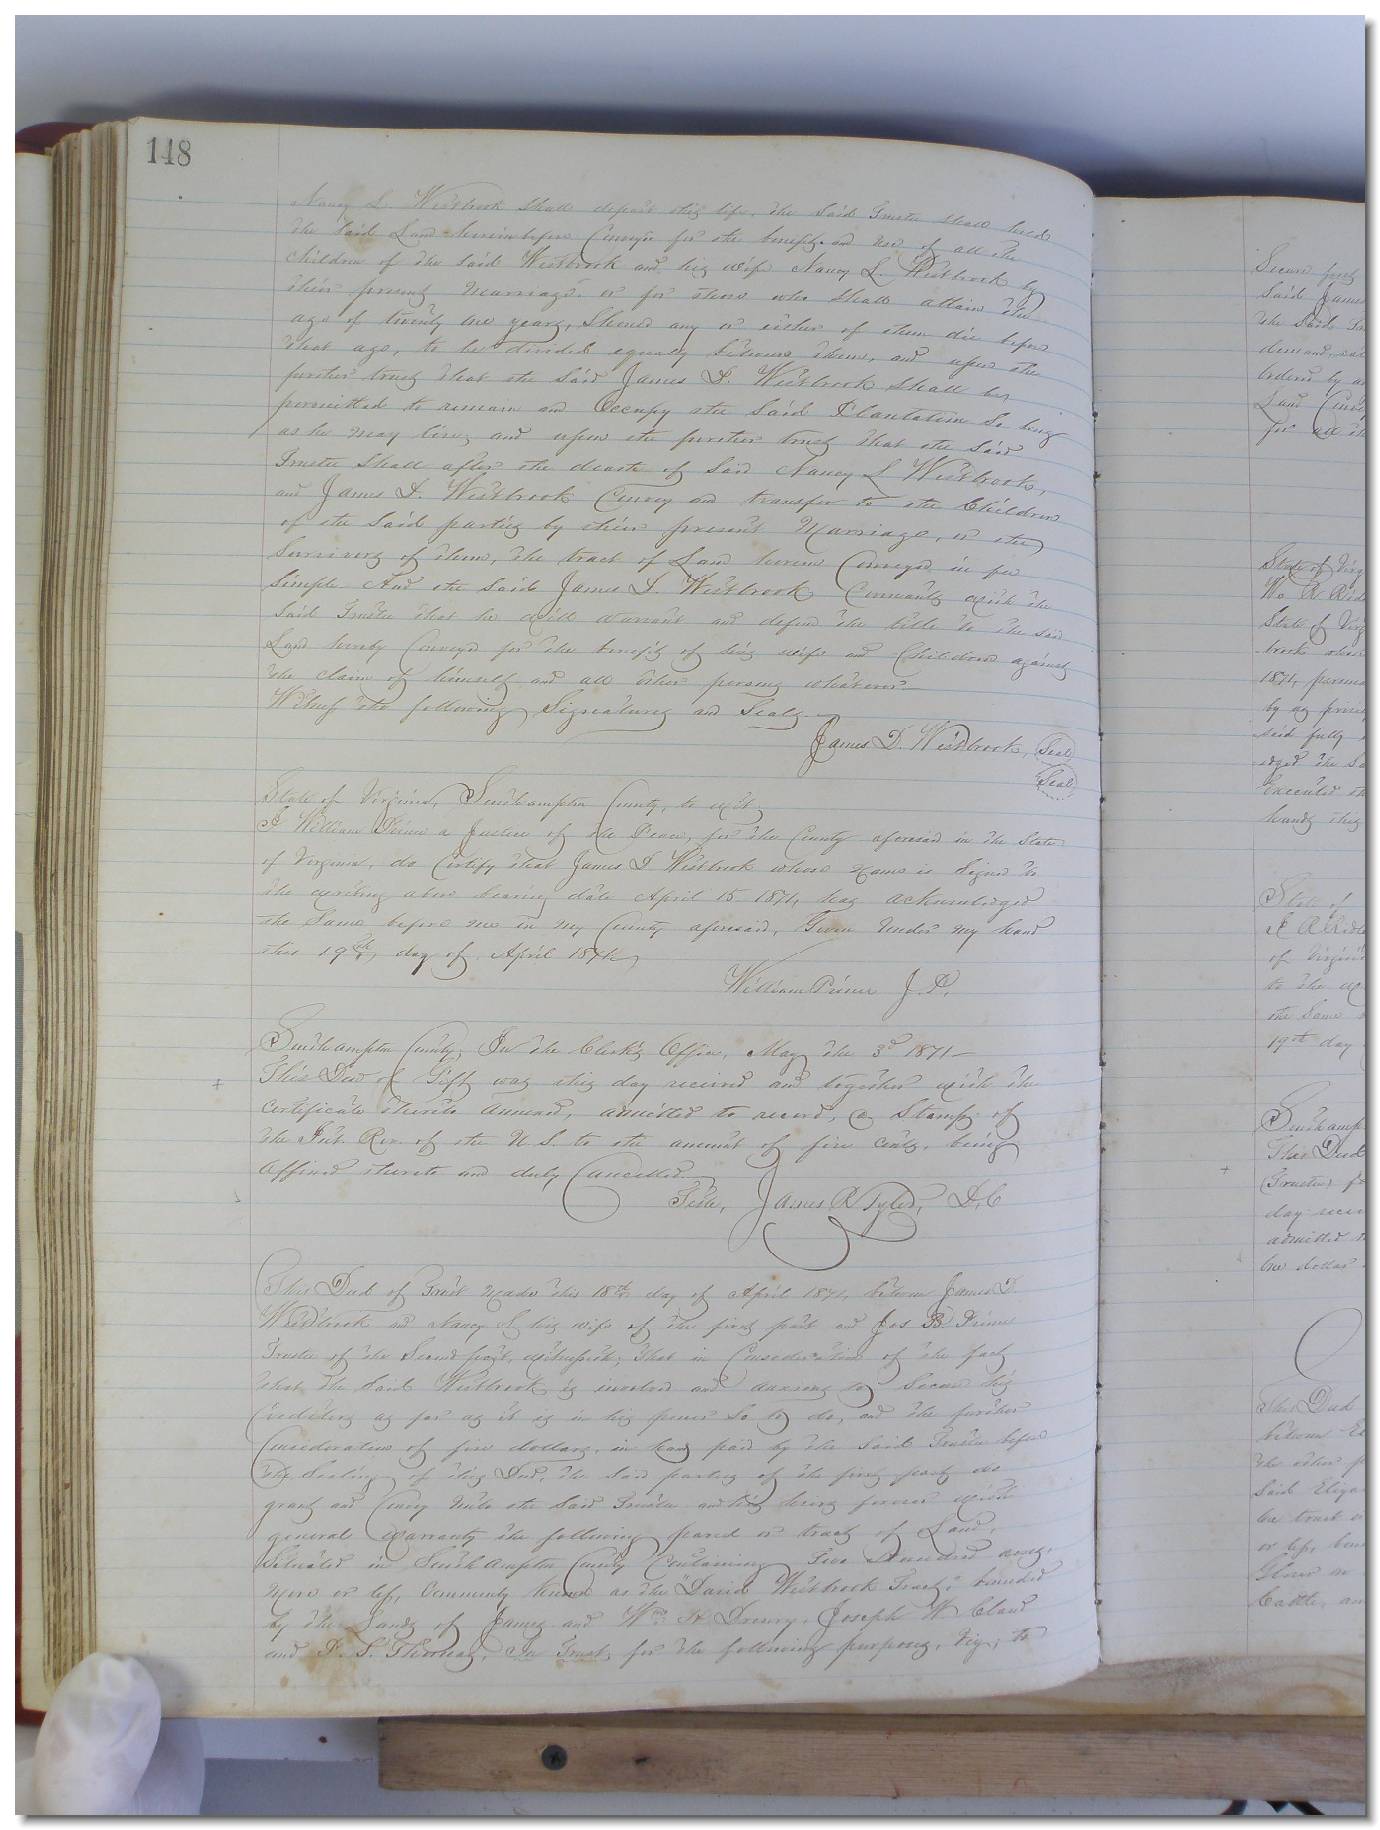 148
Nancy L. Westbrook shall depart this life, the said Trustee shall hold
the said Land herein before Conveyed for the benefit and use of all the
children of the said Westbrook and his wife Nancy L. Westbrook by
their present marriage or for those who shall attain the
age of twenty one years, Should any or either of them die before
that age, to be divided equally between them, and upon the
further trust that the said James D. Westbrook shall be
permitted to remain and Occupy the said Plantation so long
as he may live, and upon the further trust that the said
Trustee shall after the death of said Nancy L Westbrook,
and James D. Westbrook Convey and transfer to the Children
of the said parties by their present Marriage, or the
Survivors of them, the tract of Land herein Conveyed in fee
simple. And the said James D. Westbrook Covenants with the
said Trustee that he will warrant and defend the title to the said
Land hereby Conveyed for the benefit of his wife and Children against
the claim of himself and all other persons whatever.
Witness the following Signatures and Seals.
James D. Westbrook, Seal
Seal
State of Virginia, Southampton County, to wit:
I William Prince a Justice of the Peace, for the County aforesaid in the State
of Virginia, do Certify that James D Westbrook whose name is signed to
the writing above bearing date April 15 1871, has acknowledged
the same before me in my County aforesaid, Given under my hand
this 19th, day of April 1871,
William Prince J. P.
Southampton County, In the Clerk's Office, May the 3d 1871
+ This Deed of Gift was this day received and together with the
certificate thereto annexed, admitted to record, a Stamp of
the Int. Rev. of the U. S. to the amount of five cents, being
affixed thereto and duly Cancelled.
Teste, James R Tyler, D. C
This Deed of Trust made this 18th, day of April 1871, between James D.
Westbrook and Nancy L his wife of the first part and Jos B. Prince
Trustee of the Second part, witnesseth; That in Consideration of the fact
that the said Westbrook is involved and anxious to secure his
Creditors as far as it is in his power so to do, and the further
Consideration of five dollars, in hand paid by the said Trustee before
the Sealing of this Deed, the said parties of the first part do
grant and Convey unto the said Trustee and his heirs forever with
general warranty the following parcel or tract of Land,
Situated in Southampton County Containing Two Hundred acres,
more or less, Commonly known as the "David Westbrook Tract," bounded
by the Lands of James and Wm H Drewry, Joseph W Claud
and Thomas, In Trust, for the following purposes, viz; to
Secure
said James
the said
demand,
by
Land
for all the
State of Virg
State of Virg
1871,
by
said fully
the
Executed
hands this
State of
of Virginia
to the
the same
19th day
Southamp
+ This Deed
(Trustee)
day
admitted
one dollar
This Deed
between
the other
said Eliza
or
Cattle,